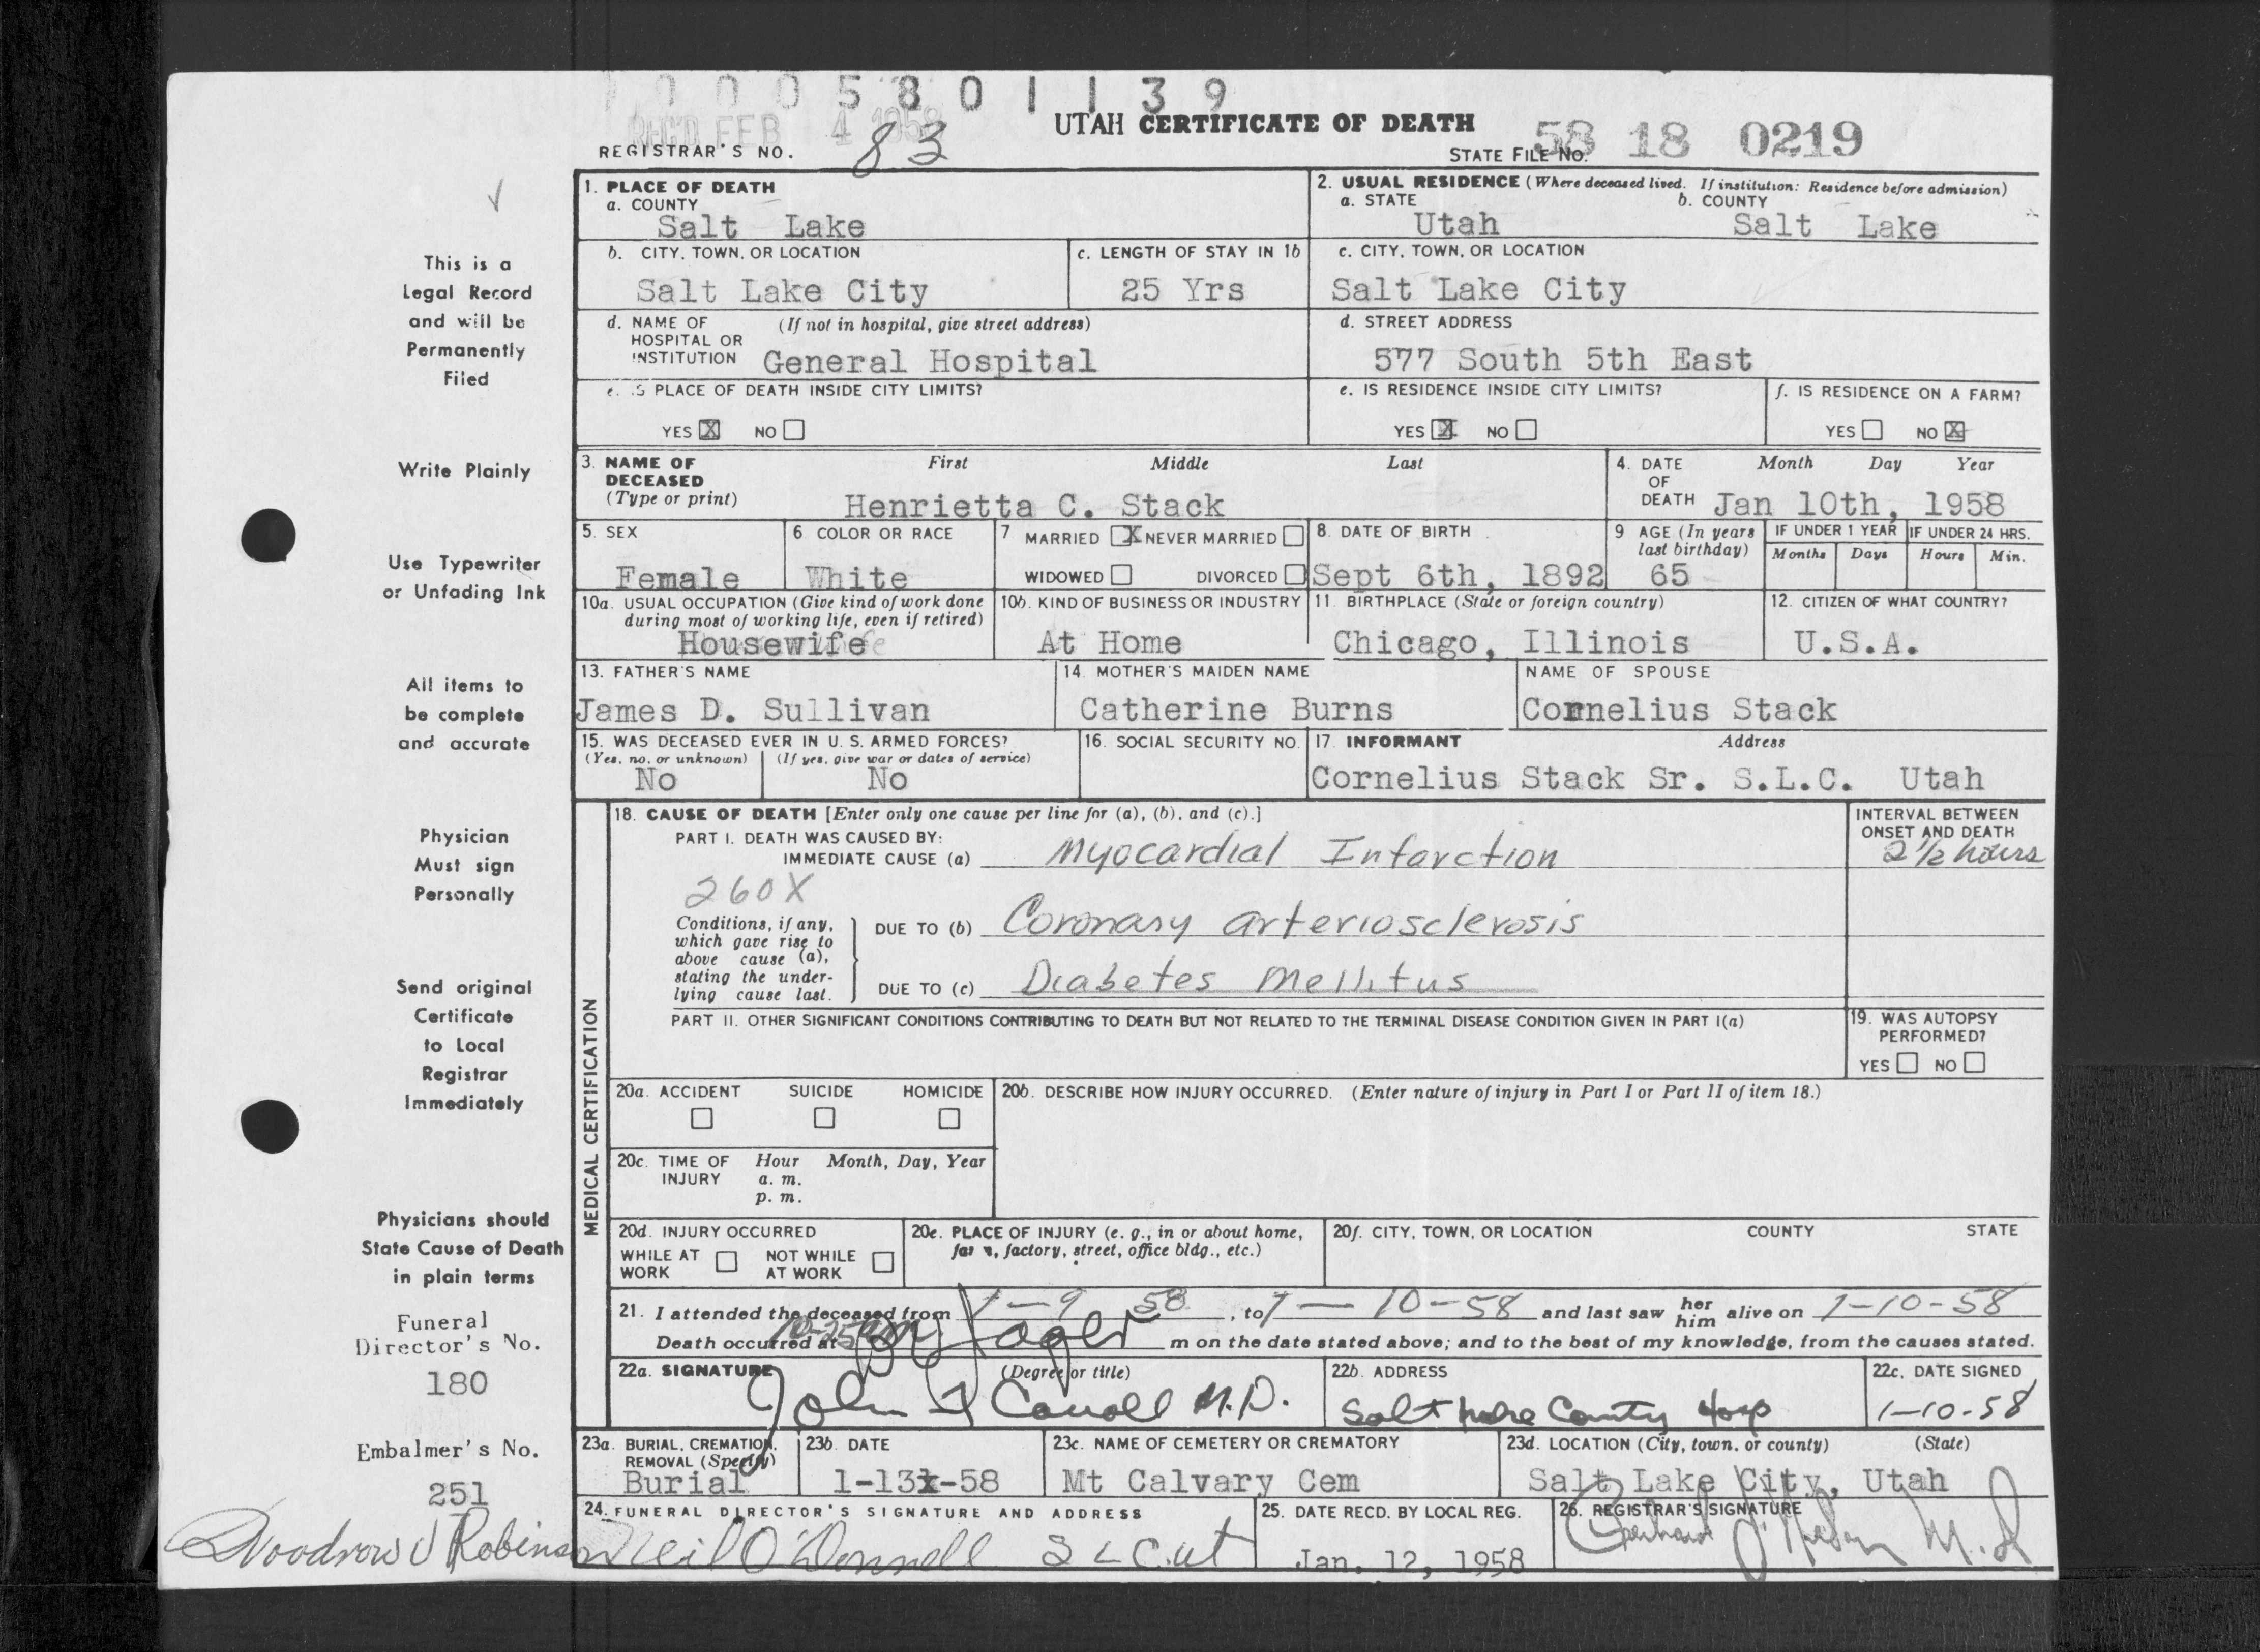 0 0 0 5 8 0 1 1 3 9
REC'D FEB 4 1958
UTAH CERTIFICATE OF DEATH
REGISTRAR'S NO. 83
STATE FILE NO. 58 18 0219
This is a
Legal Record
and will be
Permanently
Filed
Write Plainly
Use Typewriter
or Unfading Ink
All items to
be complete
and accurate
Physician
Must sign
Personally
Send original
Certificate
to Local
Registrar
Immediately
Physicians should
State Cause of Death
in plain terms
Funeral
Director's No.
180
Embalmer's No.
251
Woodrow J Robinson
1. PLACE OF DEATH
a. COUNTY
Salt Lake
2. USUAL RESIDENCE (Where deceased lived. If institution: Residence before admission)
a. STATE b. COUNTY
Utah Salt Lake
b. CITY, TOWN, OR LOCATION
Salt Lake City
c. LENGTH OF STAY IN 1b
25 Yrs
c. CITY, TOWN, OR LOCATION
Salt Lake City
d. NAME OF (If not in hospital, give street address)
HOSPITAL OR
INSTITUTION General Hospital
d. STREET ADDRESS
577 South 5th East
e. IS PLACE OF DEATH INSIDE CITY LIMITS?
YES X NO
e. IS RESIDENCE INSIDE CITY LIMITS?
YES X NO
f. IS RESIDENCE ON A FARM?
YES NO X
3. NAME OF First Middle Last
DECEASED
(Type or print) Henrietta C. Stack
4. DATE Month Day Year
OF
DEATH Jan 10th, 1958
5. SEX
Female
6 COLOR OR RACE
White
7 MARRIED X NEVER MARRIED
WIDOWED DIVORCED
8. DATE OF BIRTH
Sept 6th, 1892
9 AGE (In years
last birthday)
65
IF UNDER 1 YEAR
Months Days
IF UNDER 24 HRS.
Hours Min.
10a. USUAL OCCUPATION (Give kind of work done
during most of working life, even if retired)
Housewife
10b. KIND OF BUSINESS OR INDUSTRY
At Home
11. BIRTHPLACE (State or foreign country)
Chicago, Illinois
12. CITIZEN OF WHAT COUNTRY?
U.S.A.
13. FATHER'S NAME
James D. Sullivan
14. MOTHER'S MAIDEN NAME
Catherine Burns
NAME OF SPOUSE
Cornelius Stack
15. WAS DECEASED EVER IN U. S. ARMED FORCES?
(Yes, no, or unknown) (If yes, give war or dates of service)
No No
16. SOCIAL SECURITY NO.
17. INFORMANT Address
Cornelius Stack Sr. S.L.C. Utah
MEDICAL CERTIFICATION
18. CAUSE OF DEATH [Enter only one cause per line for (a), (b), and (c).]
PART I. DEATH WAS CAUSED BY:
IMMEDIATE CAUSE (a) Myocardial Infarction
INTERVAL BETWEEN
ONSET AND DEATH
2 1/2 hours
260X
Conditions, if any,
which gave rise to
above cause (a),
stating the under-
lying cause last.
DUE TO (b) Coronary arteriosclerosis
DUE TO (c) Diabetes mellitus
PART II. OTHER SIGNIFICANT CONDITIONS CONTRIBUTING TO DEATH BUT NOT RELATED TO THE TERMINAL DISEASE CONDITION GIVEN IN PART I(a)
19. WAS AUTOPSY
PERFORMED?
YES NO
20a. ACCIDENT SUICIDE HOMICIDE
20b. DESCRIBE HOW INJURY OCCURRED. (Enter nature of injury in Part I or Part II of item 18.)
20c. TIME OF Hour Month, Day, Year
INJURY a. m.
p. m.
20d. INJURY OCCURRED
WHILE AT NOT WHILE
WORK AT WORK
20e. PLACE OF INJURY (e. g., in or about home,
farm, factory, street, office bldg., etc.)
20f. CITY, TOWN, OR LOCATION COUNTY STATE
21. I attended the deceased from 1-9 58, to 1-10-58 and last saw her him alive on 1-10-58
Death occurred at m on the date stated above; and to the best of my knowledge, from the causes stated.
22a. SIGNATURE (Degree or title)
John F Carroll M.D.
22b. ADDRESS
Salt Lake County Hosp
22c. DATE SIGNED
1-10-58
23a. BURIAL, CREMATION,
REMOVAL (Specify)
Burial
23b. DATE
1-13-58
23c. NAME OF CEMETERY OR CREMATORY
Mt Calvary Cem
23d. LOCATION (City, town, or county) (State)
Salt Lake City, Utah
24. FUNERAL DIRECTOR'S SIGNATURE AND ADDRESS
Neil O'Donnell S L C. ut
25. DATE RECD. BY LOCAL REG.
Jan. 12, 1958
26. REGISTRAR'S SIGNATURE
M.D.